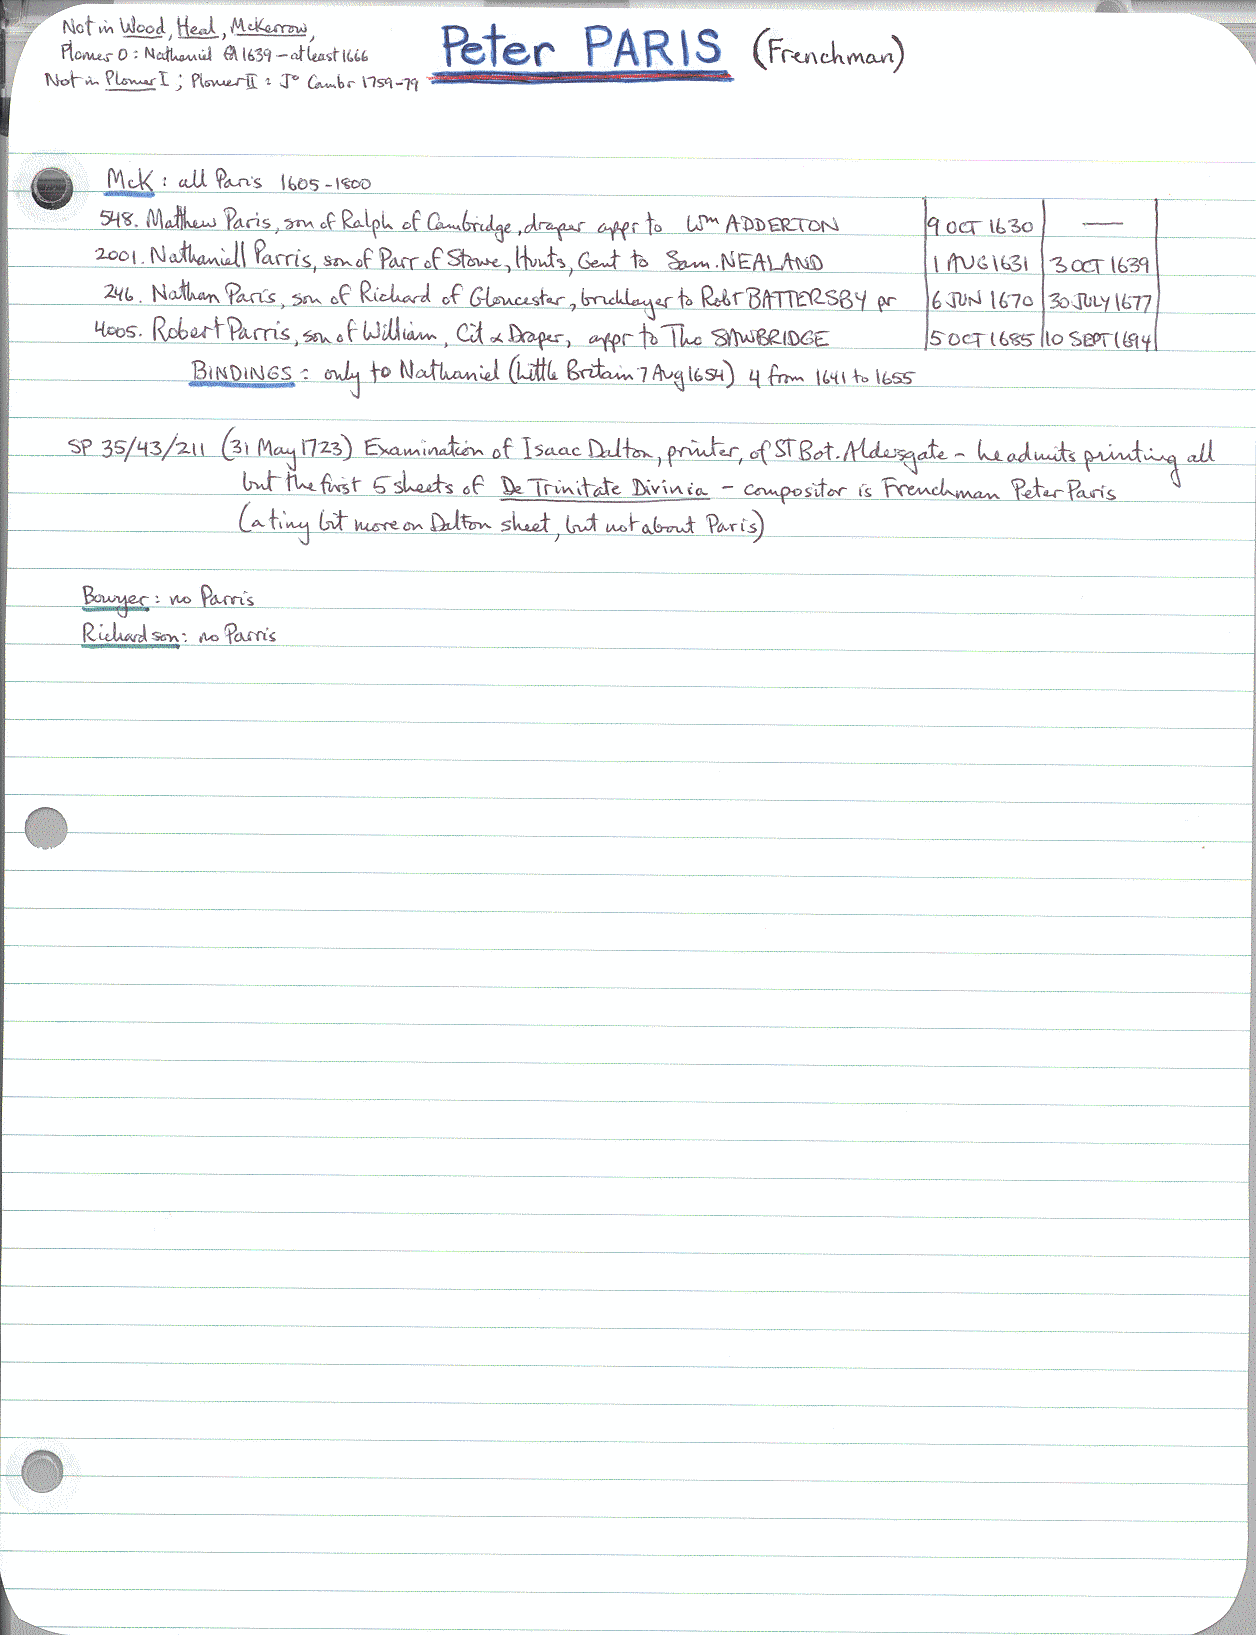 Not in Wood, Heal, McKerrow,
Plomer 0: Nathaniel 1639 – at least 1666
Not in Plomer I; Plomer II: Jo Cambr 1759-79
Peter PARIS (Frenchman)
McK: all Paris 1605-1800
548. Matthew Paris, son of Ralph of Cambridge, draper appr to Wm ADDERTON 9 OCT 1630 —
2001. Nathaniell Parris, son of Parr of Stowe, Hunts, Gent to Sam. NEALAND 1 AUG 1631 3 OCT 1639
246. Nathan Paris, son of Richard of Gloucester, bricklayer to Robt BATTERSBY pr 6 JUN 1670 30 JULY 1677
4005. Robert Parris, son of William, Cit & Draper, appr to Tho SAWBRIDGE 5 OCT 1685 10 SEPT 1694
BINDINGS: only to Nathaniel (Little Britain 7 Aug 1654) 4 from 1641 to 1655
SP 35/43/211 (31 May 1723) Examination of Isaac Dalton, printer, of St Bot. Aldersgate – he admits printing all
but the first 5 sheets of De Trinitate Divinia – compositor is Frenchman Peter Paris
(a tiny bit more on Dalton sheet, but not about Paris)
Bowyer: no Parris
Richardson: no Parris